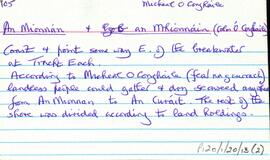 105
Micheat O Conghaile
An Mionnán & an Mhionnáin (Colm O Conghaile)
Coast & point some way E. of the breakwater
at Tracht Each.
According to Micheat O Conghaile (feal na gcurrach)
landless people could gather & dry seaweed anywhere
from An Mionnan to An Curait. The rest of the
shore was divided according to land holdings.
P120/1/20/18 (2)